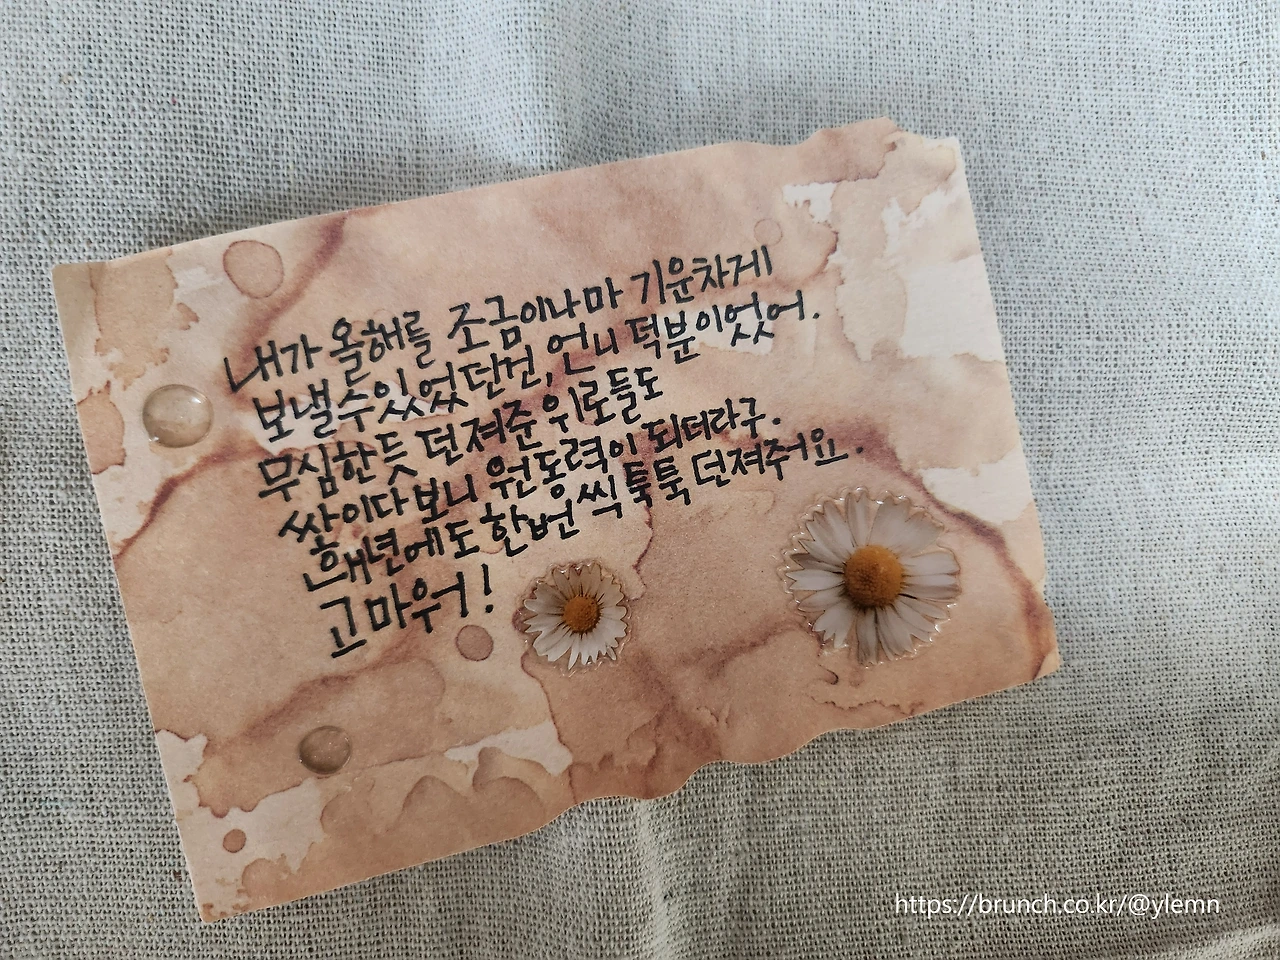 내가 올해를 조금이나마 기운차게
보낼수있었던건, 언니 덕분이었어.
무심한듯 던져준 위로들도
쌓이다보니 원동력이 되더라구.
내년에도 한번씩 툭툭 던져주어요.
고마워!
https://brunch.co.kr/@ylemn